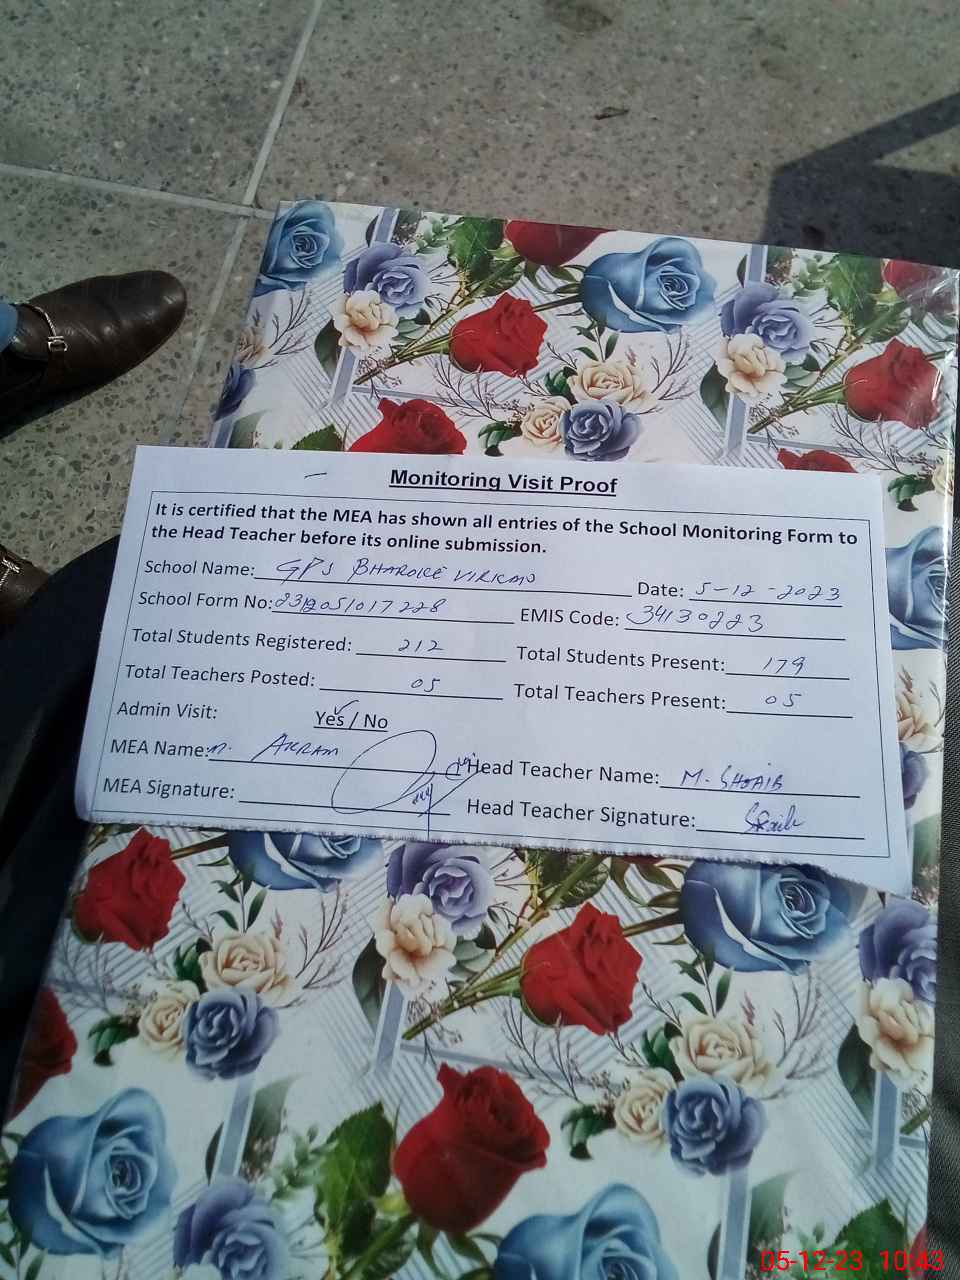 Monitoring Visit Proof
It is certified that the MEA has shown all entries of the School Monitoring Form to
the Head Teacher before its online submission.
School Name: GPS BHAROKE VIRKAN Date: 5-12-2023
School Form No: 2312051017228 EMIS Code: 34130223
Total Students Registered: 212 Total Students Present: 179
Total Teachers Posted: 05 Total Teachers Present: 05
Admin Visit: Yes / No
MEA Name: M. AKRAM Head Teacher Name: M. SHOAIB
MEA Signature: Head Teacher Signature:
05-12-23 10:43